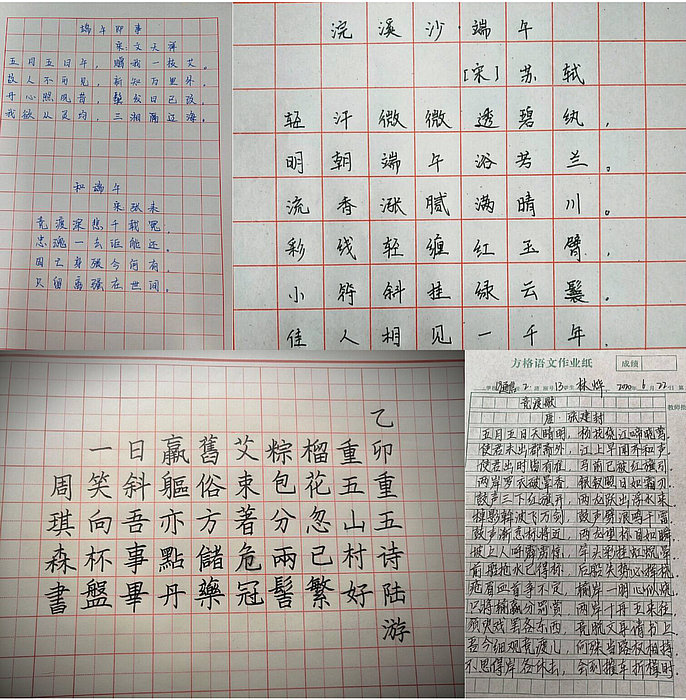 端午即事
宋:文天祥
五月五日午，赠我一枝艾。
故人不可见，新知万里外。
丹心照夙昔，鬓发日已改。
我欲从灵均，三湘隔辽海。
和端午
宋张耒
竞渡深悲千载冤，
忠魂一去谁能还。
身殒今何有，
只留离骚在世间。
浣溪沙·端午
[宋]苏轼
轻汗微微透碧纨，
明朝端午浴芳兰。
流香涨腻满晴川。
彩线轻缠红玉臂，
小符斜挂绿云鬟。
佳人相见一千年。
乙卯重五诗陆游
重五山村好
榴花忽已繁
粽包分兩髻
艾束著危冠
舊俗方儲藥
羸軀亦點丹
日斜吾事畢
一笑向杯盤
周琪森書
方格语文作业纸
成绩
林烨 2020 6月22日
竞渡歌
唐·张建封
五月五日天晴明，杨花绕江啼晓莺。
使君未出郡斋外，江上早闻齐和声。
使君出时皆有准，马前已被红旗引。
两岸罗衣破晕香，银钗照日如霜刃。
鼓声三下红旗开，两龙跃出浮水来。
棹影斡波飞万剑，鼓声劈浪鸣千雷。
鼓声渐急标将近，两龙望标目如瞬。
坡上人呼霹雳惊，竿头彩挂虹蜺晕。
前船抢水已得标，后船失势空挥桡。
疮眉血首争不定，输岸一朋心似烧。
只将输赢分罚赏，两岸十舟五来往。
须臾戏罢各东西，竞脱文身请书上。
吾今细观竞渡儿，何殊当路权相持。
不思得岸各休去，会到摧车折楫时